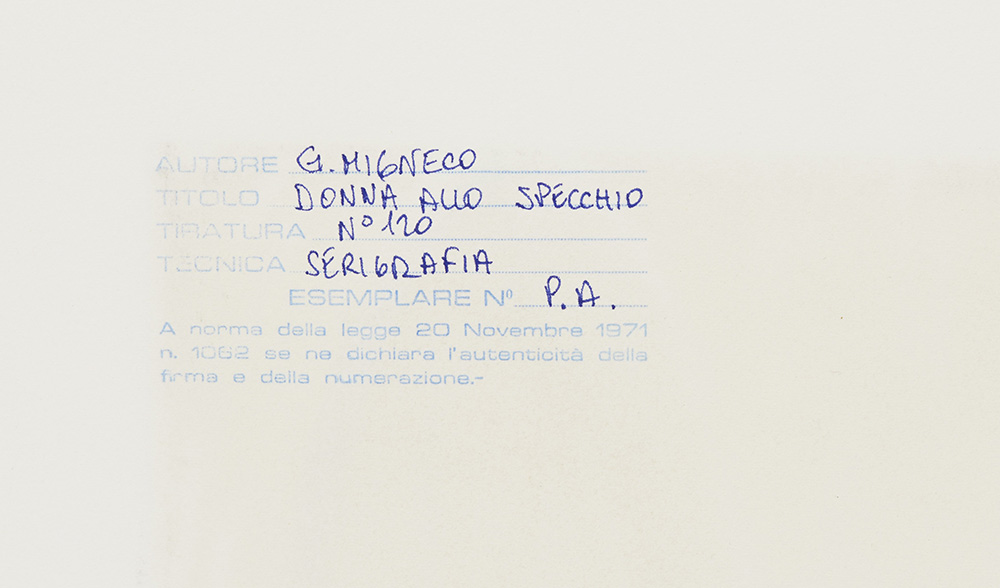 AUTORE G. MIGNECO
TITOLO DONNA ALLO SPECCHIO
TIRATURA N° 120
TECNICA SERIGRAFIA
ESEMPLARE N° P.A.
A norma della legge 20 Novembre 1971
n. 1062 se ne dichiara l'autenticità della
firma e della numerazione.-